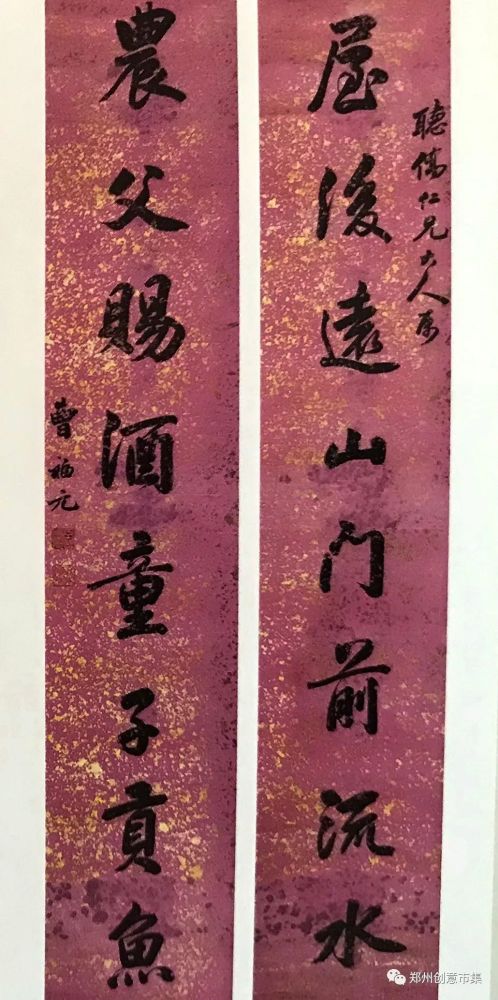 聽儒仁兄大人属
屋後遠山門前流水
農父賜酒童子貢魚
曹福元
郑州创意市集